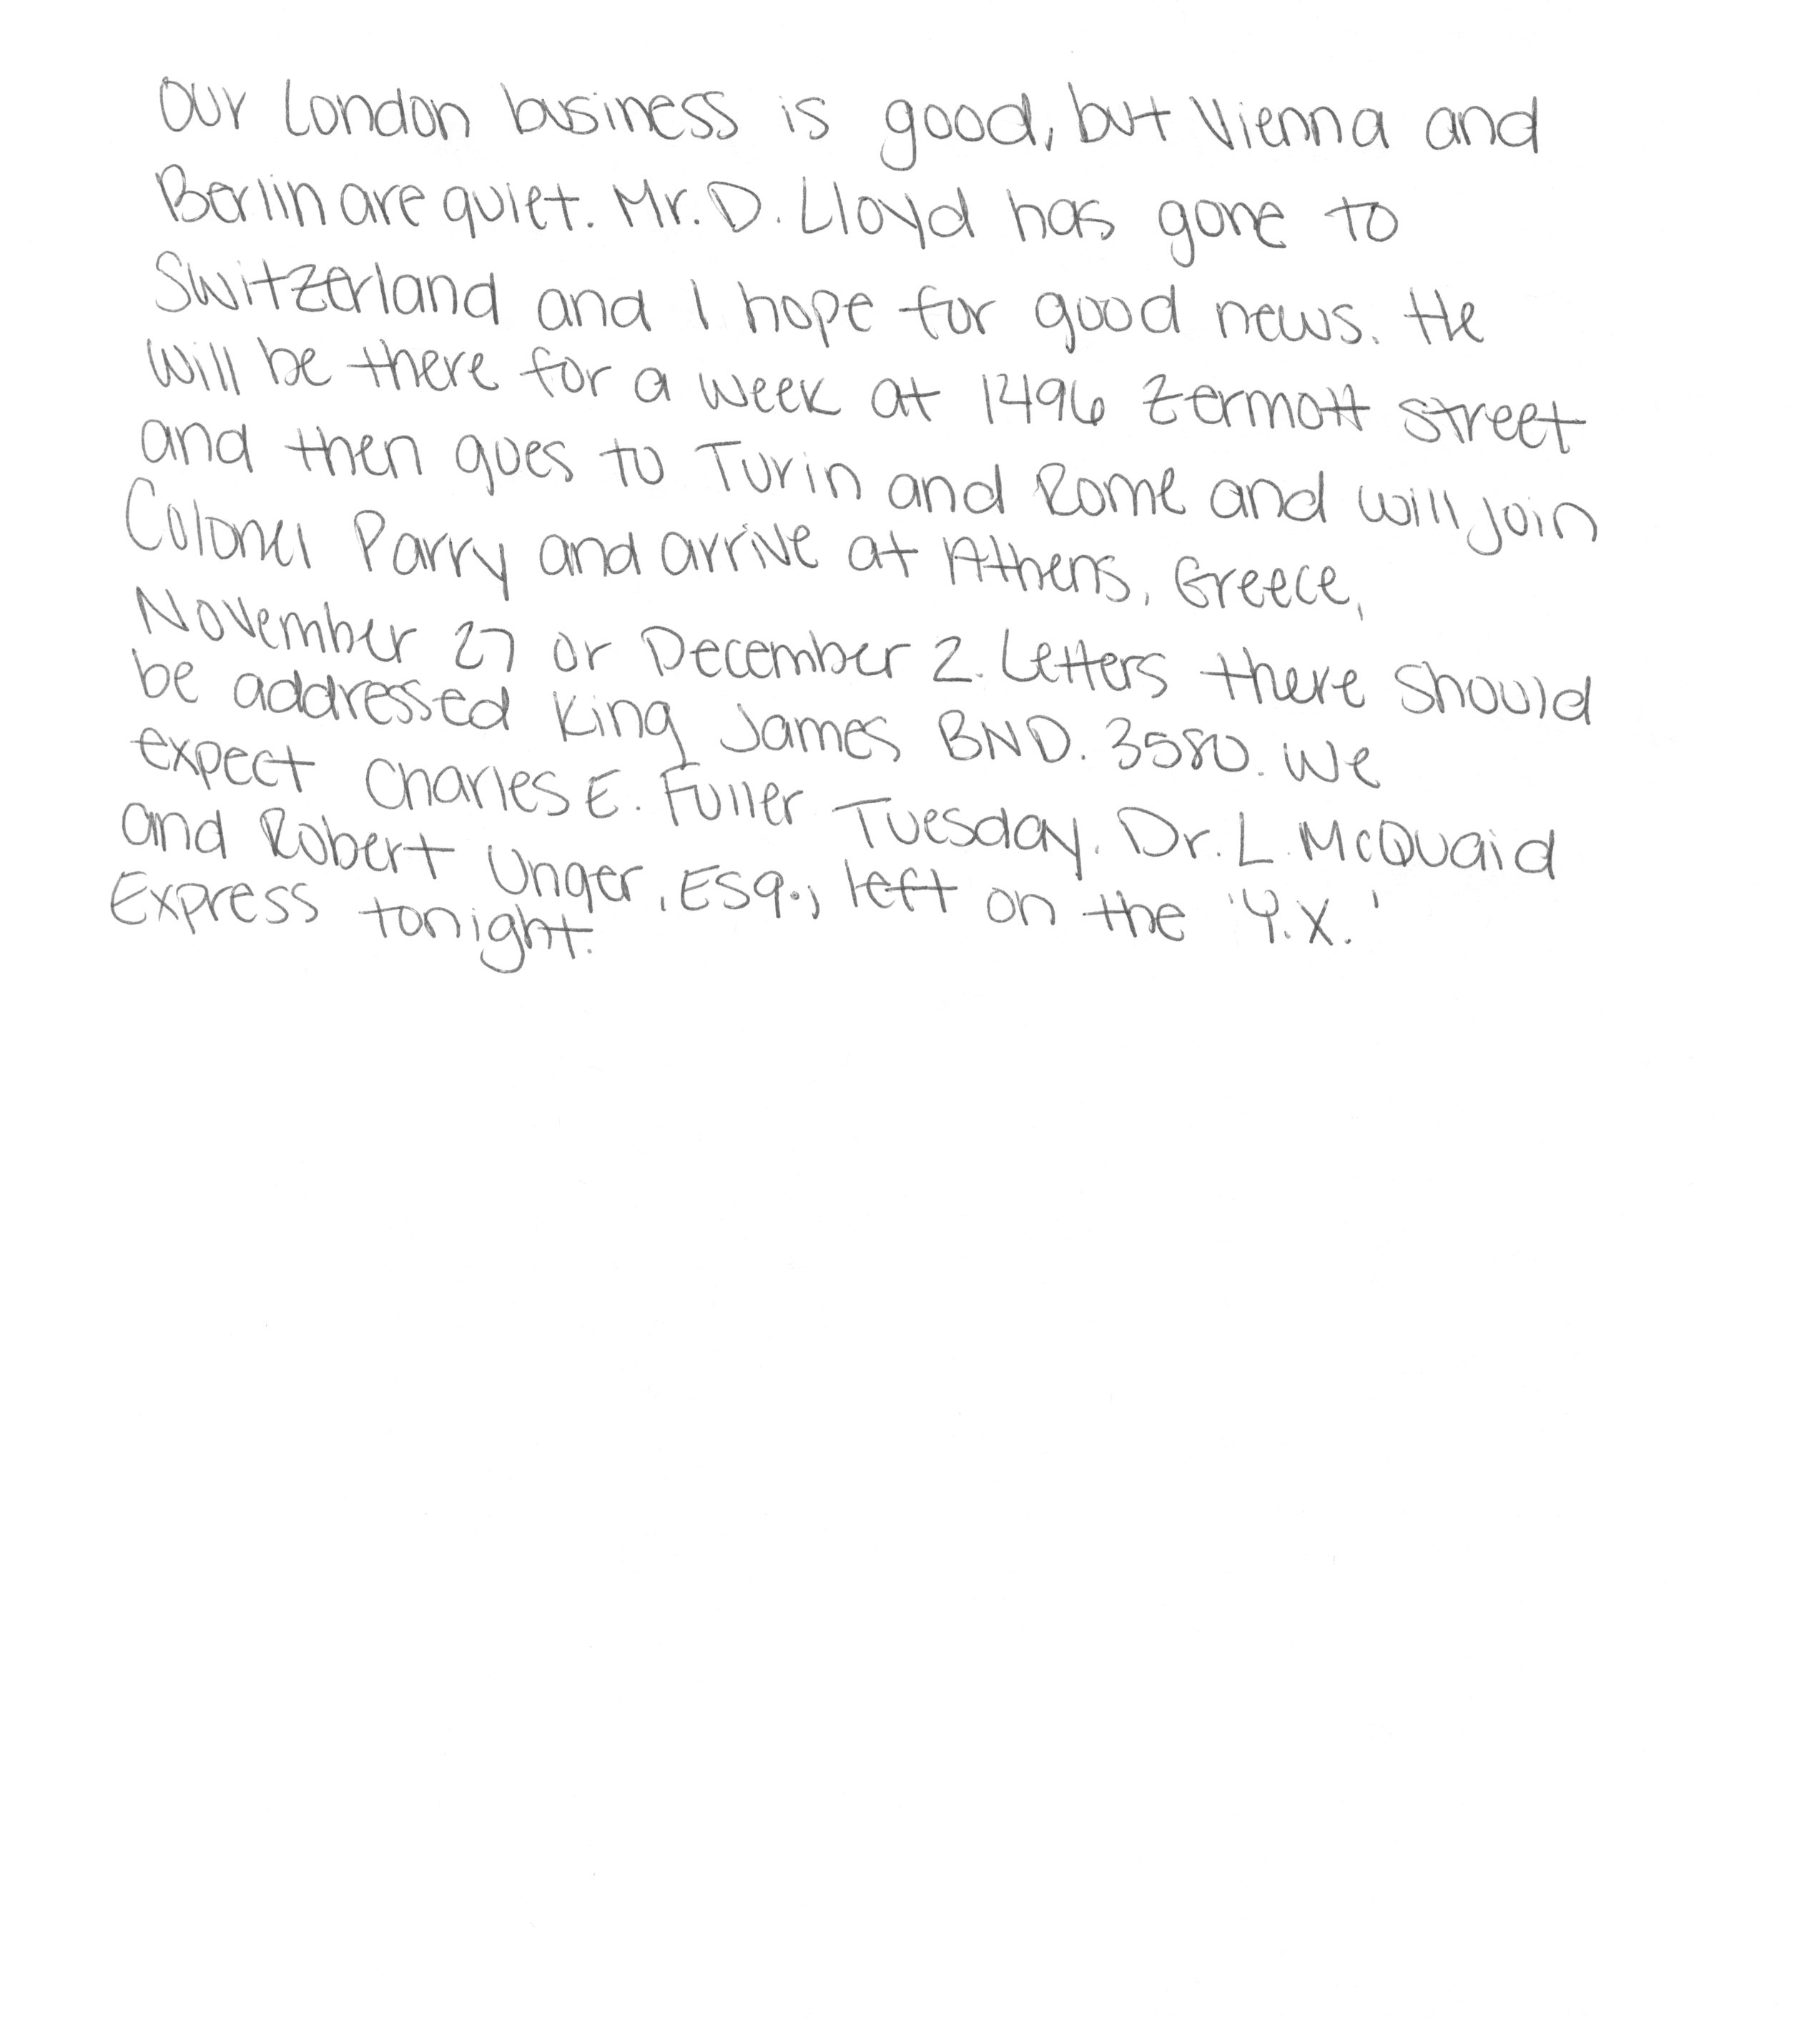 Our London business is good, but Vienna and
Berlin are quiet. Mr. D. Lloyd has gone to
Switzerland and I hope for good news. He
will be there for a week at 1496 Zermott street
and then goes to Turin and Rome and will join
Colonel Parry and arrive at Athens, Greece,
November 27 or December 2. Letters there should
be addressed King James BND. 3580. We
expect Charles E. Fuller Tuesday. Dr. L. McQuaid
and Robert Unger, Esq., left on the 'Y.X.'
Express tonight.